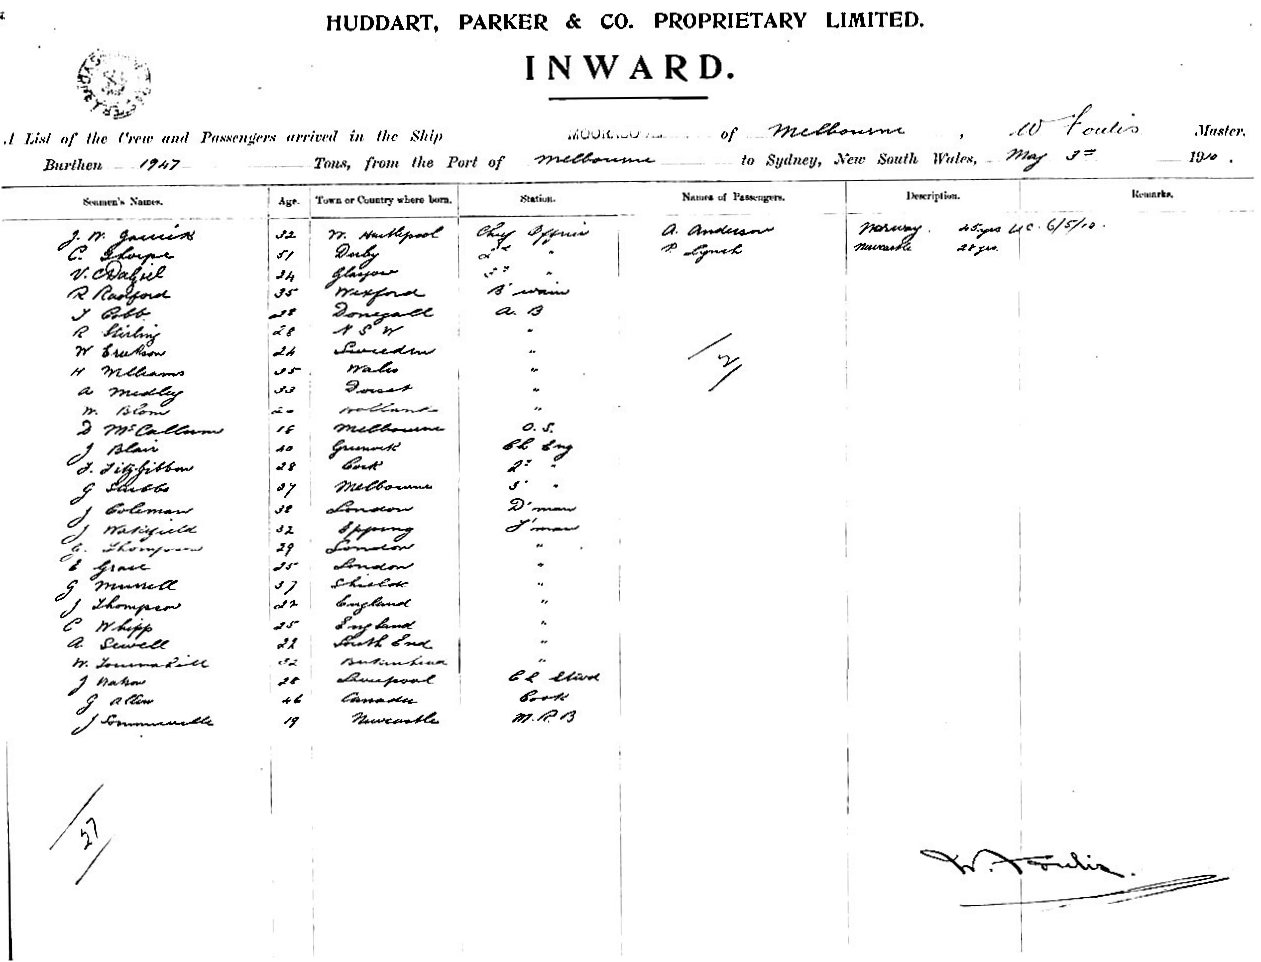 HUDDART, PARKER & CO. PROPRIETARY LIMITED.
INWARD.
A List of the Crew and Passengers arrived in the Ship of Melbourne, W Foulis Master,
Burthen 1947 Tons, from the Port of Melbourne to Sydney, New South Wales, May 3rd 1910.
Seamen's Names. Age. Town or Country where born. Station. Names of Passengers. Description. Remarks.
J. W. 32 W. Hartlepool Chief Officer A. Anderson Norway. 45 yrs U.C. 6/5/10.
C. Thorpe 51 Derby 2nd " P. Lynch Newcastle 28 yrs.
V. C Dalziel 24 Glasgow 3rd "
R Radford 35 Wexford B'swain
J Cobb 28 Donegall A. B
R Stirling 28 N S W "
W Erickson 24 Sweden "
H Williams 35 Wales "
A Medley 33 Dorset "
W. Blom Holland "
D McCallum 18 Melbourne O. S.
J Blair 40 Greenock Ch Eng
J. Fitzgibbon 28 Cork 2nd "
G Stubbs 37 Melbourne 3 "
J Coleman 38 London D'man
J Wakefield 32 Epping F'man
Thompson 29 London "
E Grace 25 London "
G Murrell 37 "
J Thompson 22 England "
C Whipp 25 England "
A. Sewell 22 South End "
W. 32 Birkenhead "
J 28 Liverpool Ch Stwd
G Allen 46 Canada Cook
J Sommerville 19 Newcastle M. R B
2
27
W. Foulis.